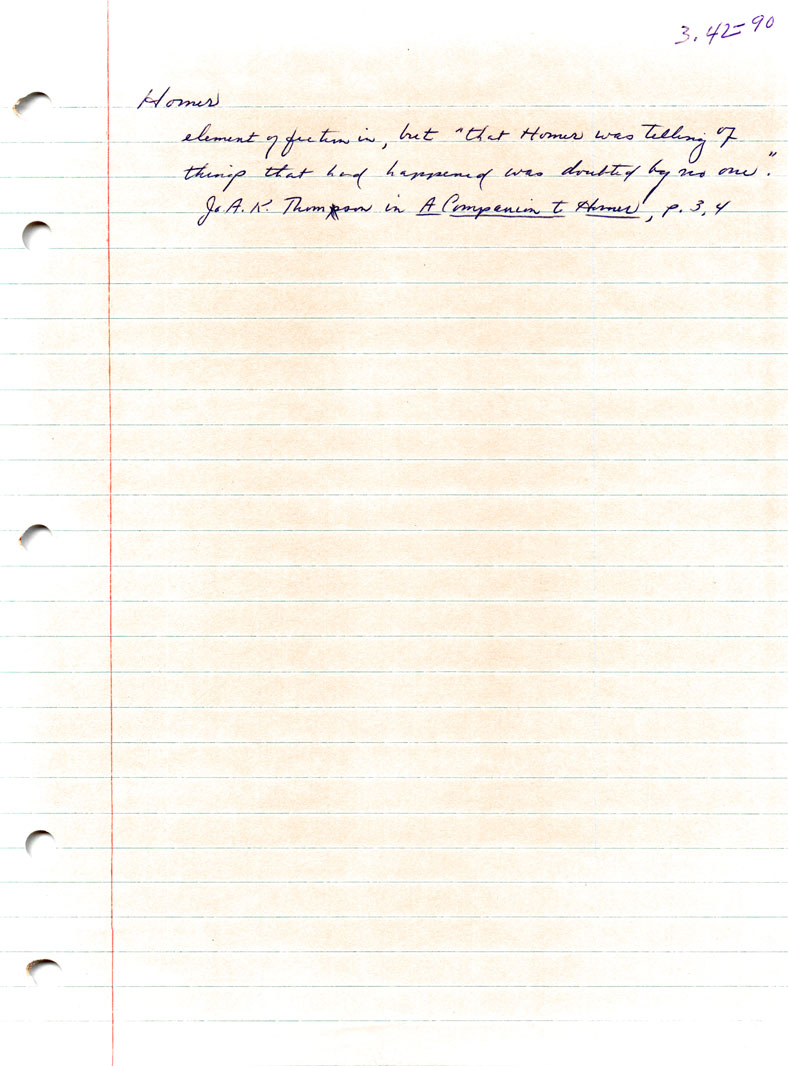 3.42=90
Homer
element of fiction in, but "that Homer was telling of
things that had happened was doubted by no one".
Jo A. K. Thompson in A Companion to Homer, p. 3, 4